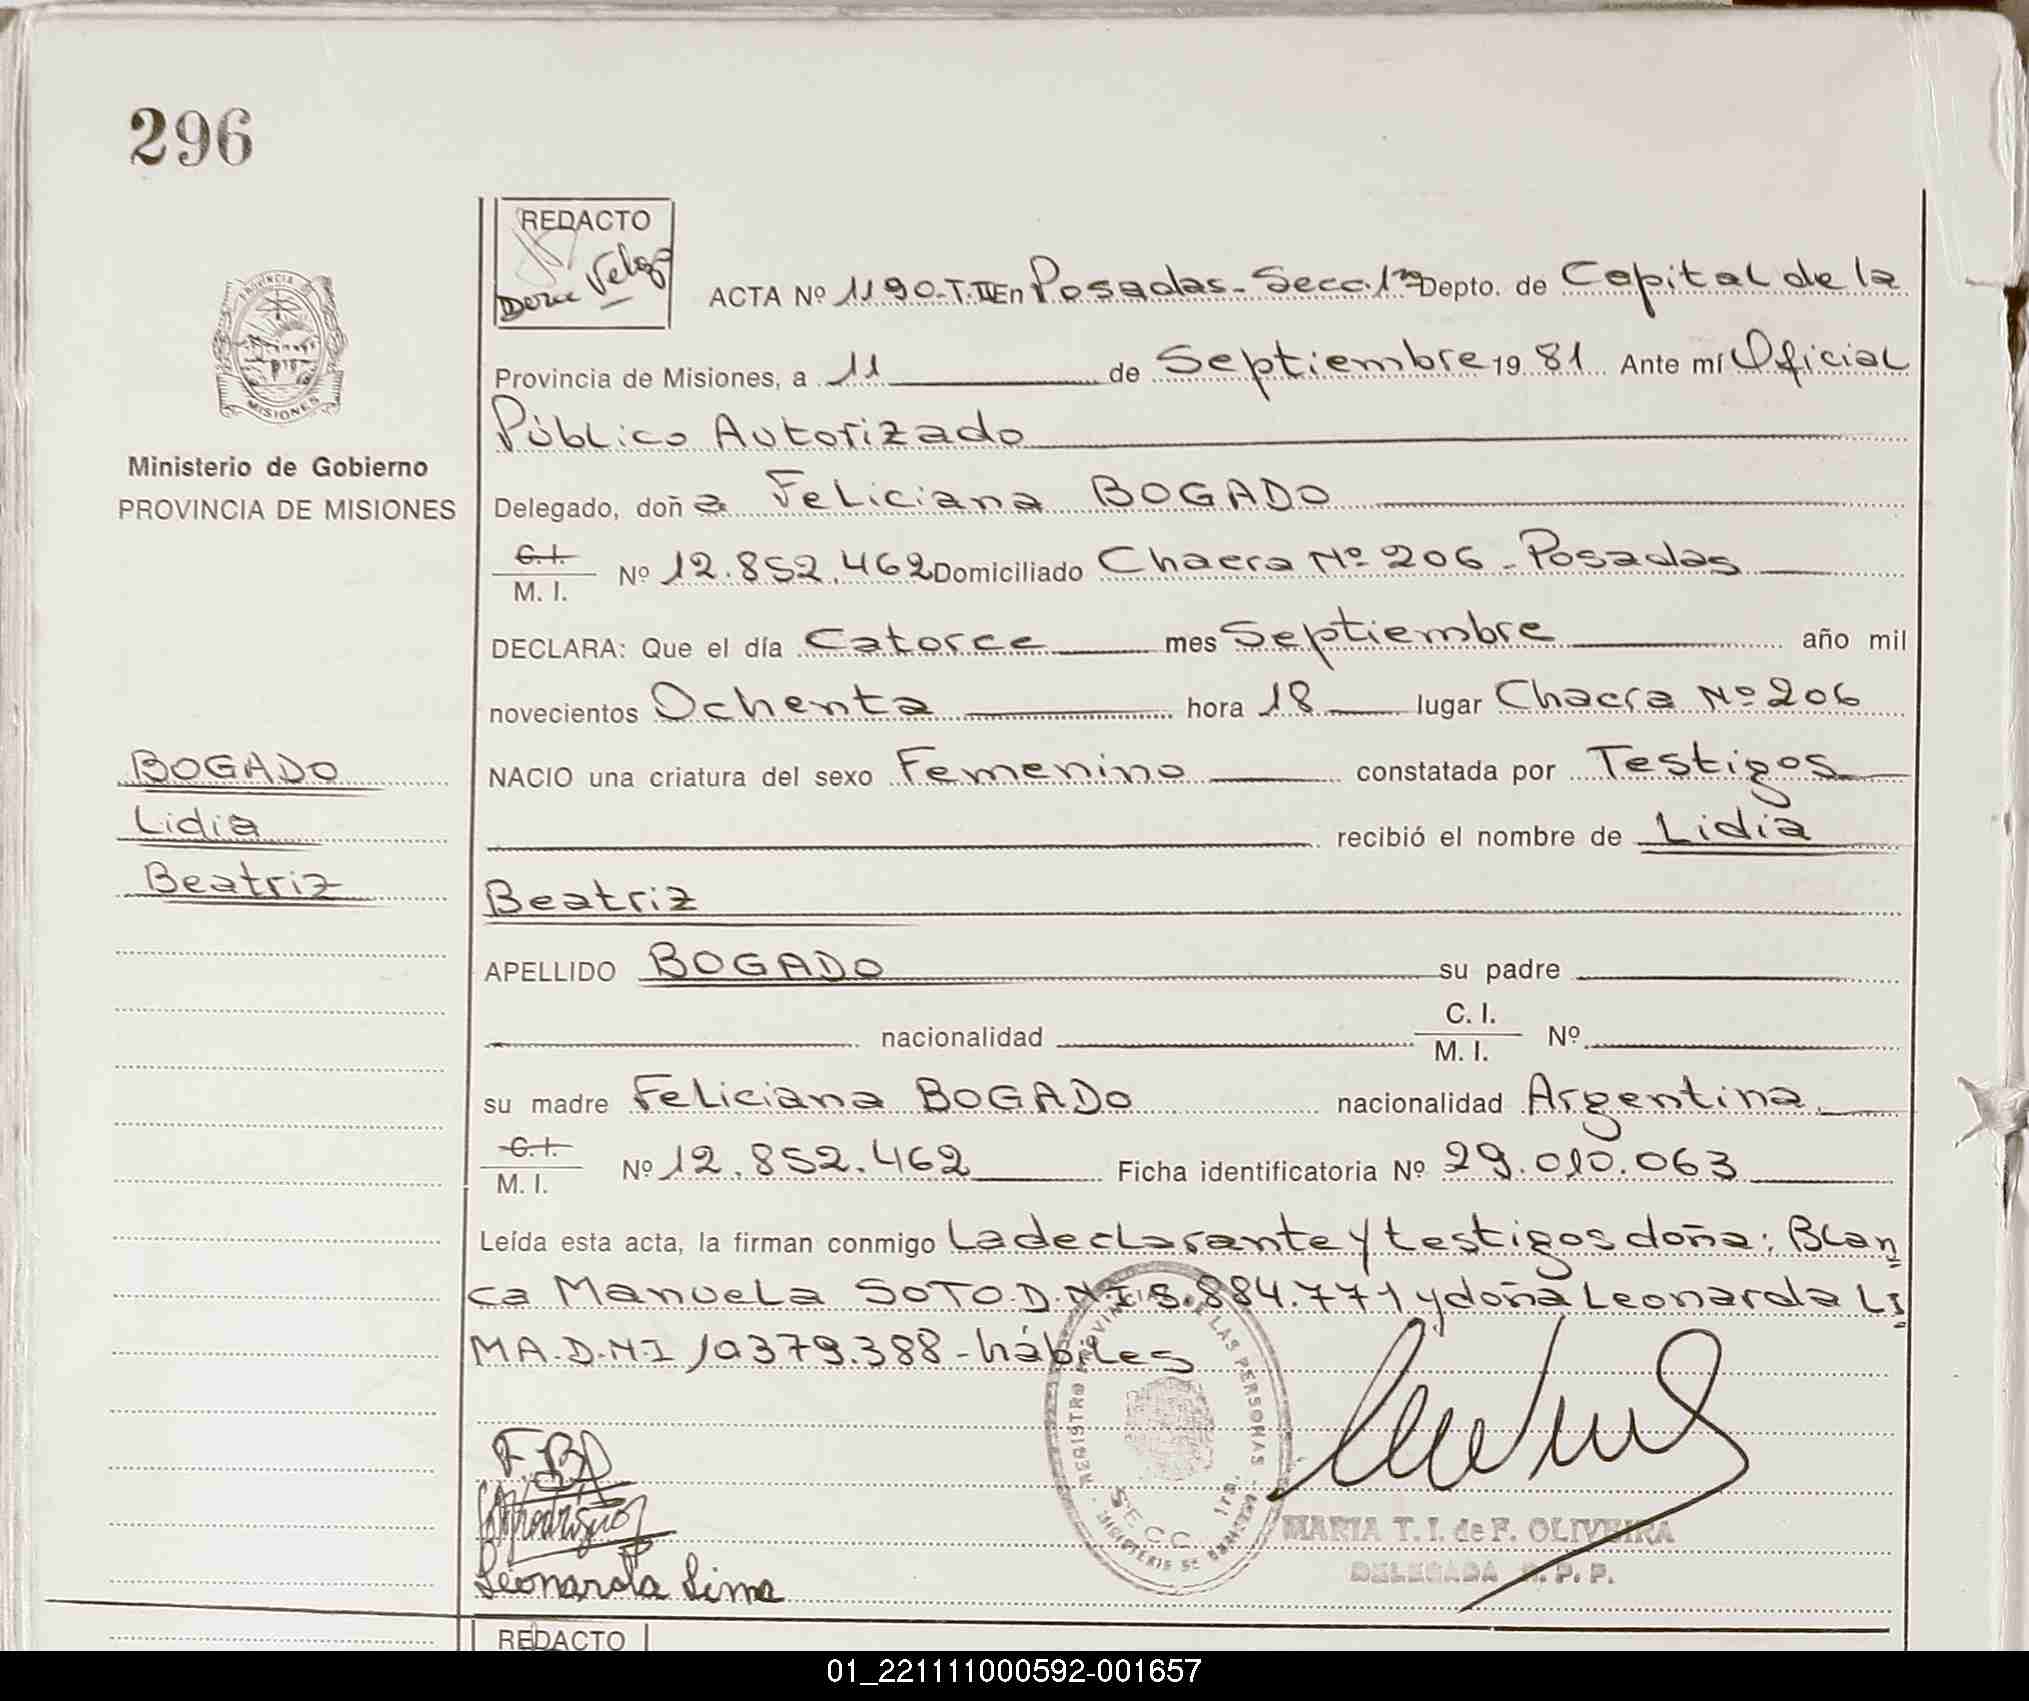 296
REDACTO
PROVINCIA
MISIONES
Ministerio de Gobierno
PROVINCIA DE MISIONES
ACTA Nº 1190-T.III En Posadas-Secc.1ra Depto. de Capital de la
Provincia de Misiones, a 11 de Septiembre 1981 Ante mí Oficial
Público Autorizado
Delegado, doña Feliciana BOGADO
C.I. M. I. Nº 12.852.462 Domiciliado Chacra Nº 206 - Posadas
DECLARA: Que el día Catorce mes Septiembre año mil
novecientos Ochenta hora 18 lugar Chacra Nº 206
BOGADO
Lidia
Beatriz
NACIO una criatura del sexo Femenino constatada por Testigos
recibió el nombre de Lidia
Beatriz
APELLIDO BOGADO su padre
nacionalidad C. I. M. I. Nº
su madre Feliciana BOGADO nacionalidad Argentina
C.I. M. I. Nº 12.852.462 Ficha identificatoria Nº 29.010.063
Leída esta acta, la firman conmigo La declarante y testigos doña: Blan
ca Manuela SOTO.D.N.I 5.884.771 y doña Leonarda LI
MA.D.N.I 10379.388-hábiles
F.B
Leonarda Lima
SECC 1ra.
MARIA T. I. de F. OLIVEIRA
DELEGADA R. P. P.
REDACTO
01_221111000592-001657